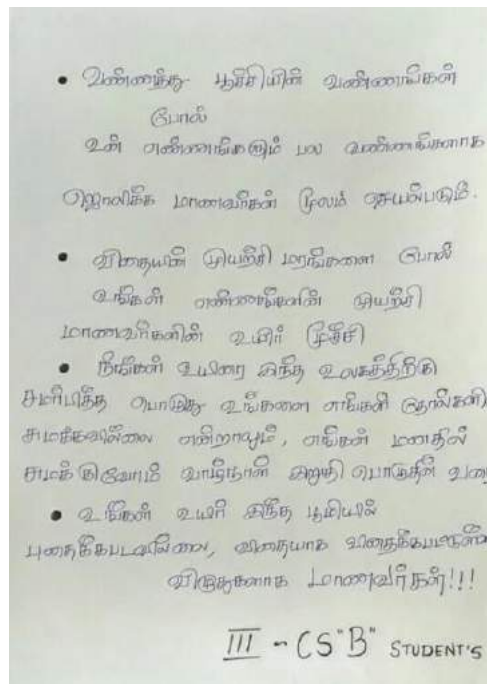 • வண்ணத்து பூச்சியின் வண்ணங்கள்
போல்
உன் எண்ணங்களும் பல வண்ணங்களாக
ஜொலிக்க மாணவர்கள் மூலம் செயல்படும்.
• விதையின் முயற்சி மரங்களை போல்
உங்கள் எண்ணங்களின் முயற்சி
மாணவர்களின் உயிர் மூச்சி
• நீங்கள் உயிரை இந்த உலகத்திற்கு
சமர்பித்த பொழுது உங்களை எங்கள் தோள்கள்
சுமக்கவில்லை என்றாலும், எங்கள் மனதில்
சுமக்கிவோம் வாழ்நாள் இறுதி பொழுதின் வரை
• உங்கள் உயிர் இந்த பூமியில்
புதைக்கபடவில்லை, விதையாக விதைக்கபட்டுள்ள
விழுதுகளாக மாணவர்கள்!!!
III - CS "B" STUDENT'S